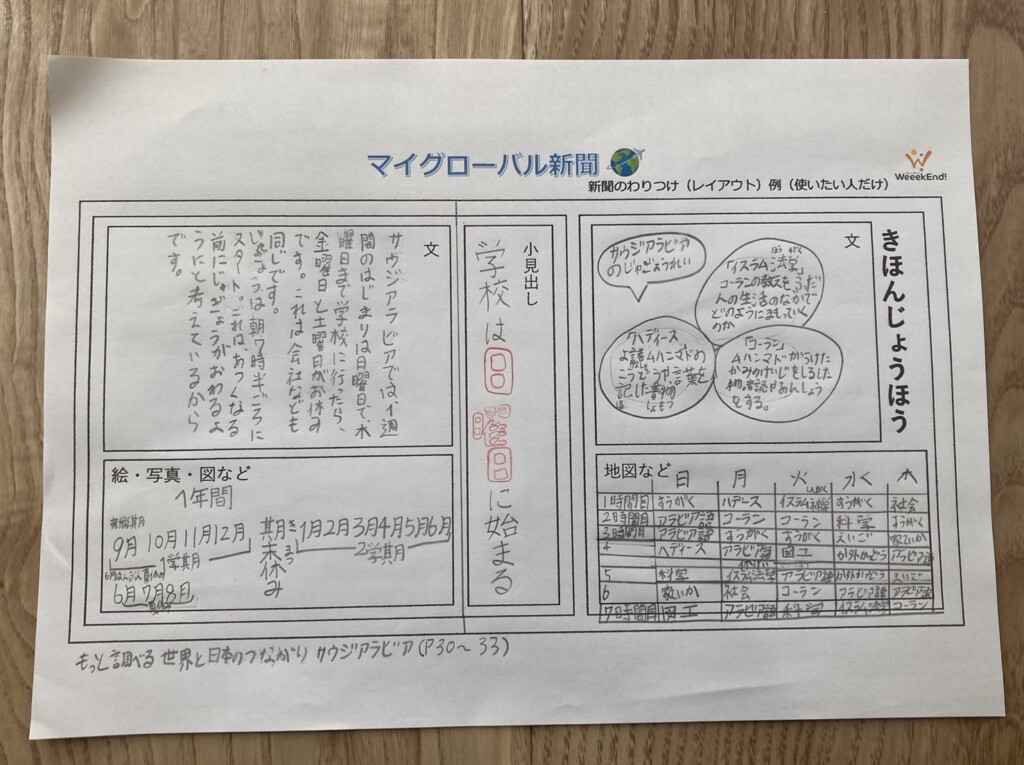 マイグローバル新聞
新聞のわりつけ（レイアウト）例（使いたい人だけ）
WeeekEnd!
きほんじょうほう
文
サウジアラビア
のじゅぎょうれい
「イスラム法学」
ほう がく
コーランの教えをふだ
んの生活のなかで
どのようにまもっていく
のか
「ハディース」
ムハンマドの
こうどうや言葉を
記した書物
しょもつ
「コーラン」
ムハンマドがうけた
かみのけいじをしるした
物。音読やあんしょう
をする。
地図など
日 月 火 水 木
1時間目 すうがく ハディース イスラム法学 すうがく 社会
2時間目 アラビア語 コーラン コーラン 科学 すうがく
3時間目 アラビア語 すうがく すうがく えいご
4 ヘディース アラビア語 図工 かがいかつどう アラビア語
5 科学 イスラム法学 アラビア語 かがいかつどう えいご
6 社会 コーラン アラビア語 アラビア語
7時間目 図工 アラビア語 科学 イスラム法学 コーラン
小見出し
学校は日曜日に始まる
文
サウジアラビアでは、1週
間のはじまりは日曜日で、木
曜日まで学校に行ったら、
金曜日と土曜日がお休み
です。これは会社なども
同じです。
じゅぎょうは朝7時半ごろに
スタート。これは、あつくなる
前にじゅぎょうがおわるよ
うにと考えているから
です。
絵・写真・図など
1年間
9月 10月 11月 12月
1学期
期末休み
き まつ
1月 2月 3月 4月 5月 6月
2学期
6月 7月 8月
もっと調べる 世界と日本のつながり サウジアラビア(P30～33)